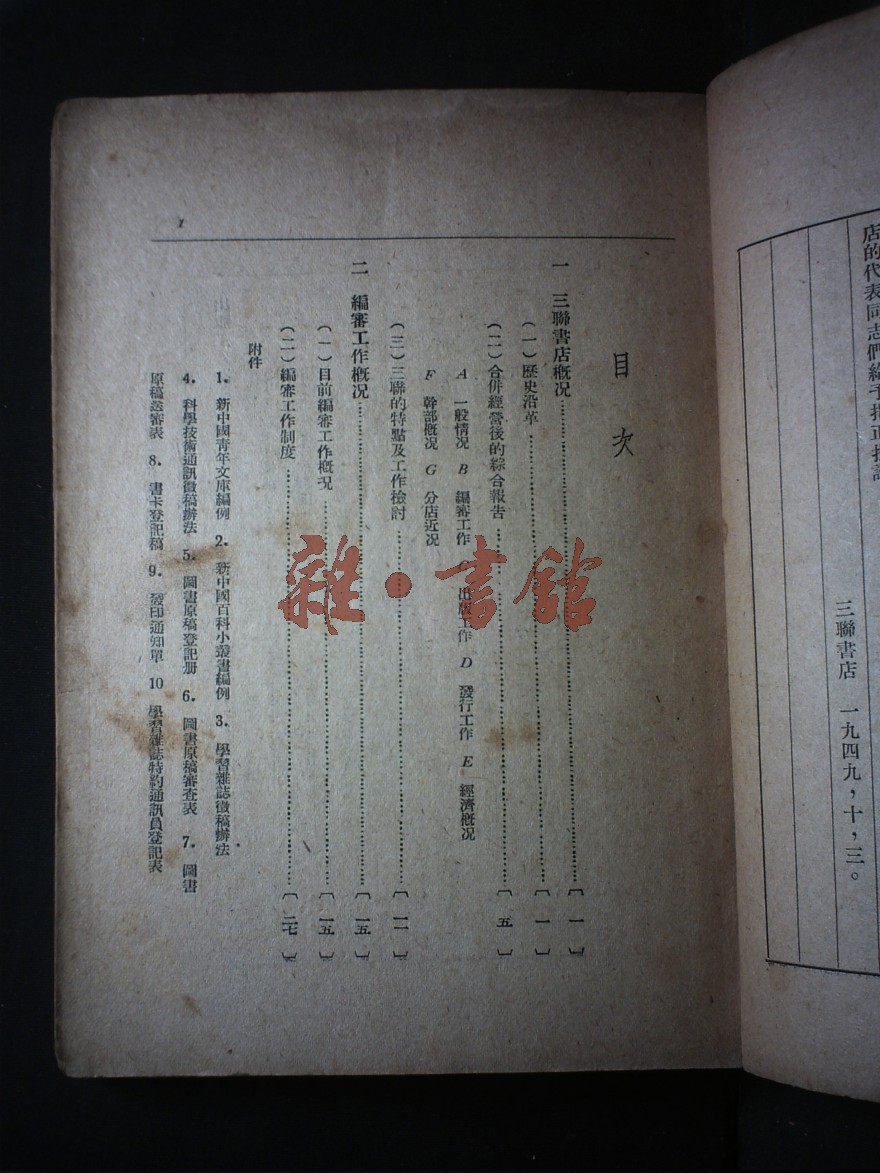 店的代表同志們
三聯書店 一九四九，十，三。
目次
一 三聯書店概況……〔一〕
（一）歷史沿革……〔一〕
（二）合併經營後的綜合報告……〔五〕
A 一般情況 B 編審工作 出版工作 D 發行工作 E 經濟概況
F 幹部概況 G 分店近況
（三）三聯的特點及工作檢討……〔一二〕
二 編審工作概況……〔一五〕
（一）目前編審工作概況……〔一五〕
（二）編審工作制度……〔二七〕
附件
1. 新中國青年文庫編例 2. 新中國百科小叢書編例 3. 學習雜誌徵稿辦法
4. 科學技術通訊徵稿辦法 5. 圖書原稿登記册 6. 圖書原稿審查表 7. 圖書
原稿送審表 8. 書卡登記稿 9. 發印通知單 10 學習雜誌特約通訊員登記表
1
雜·書館